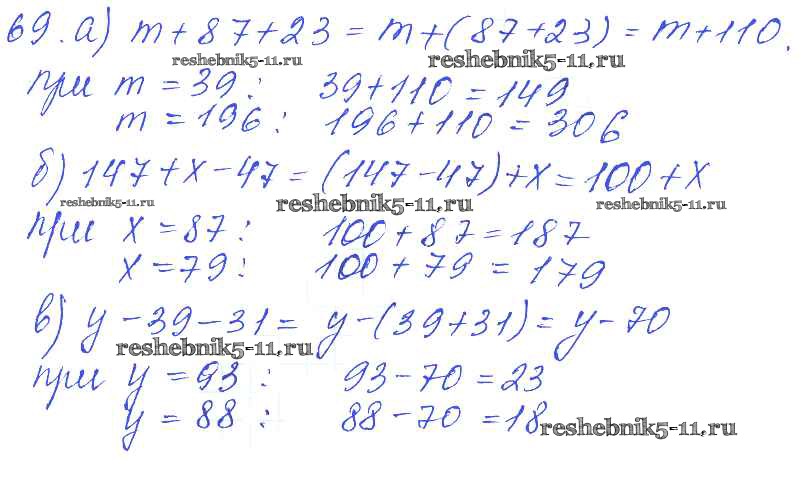 69. а) m + 87 + 23 = m + (87 + 23) = m + 110.
reshebnik5-11.ru reshebnik5-11.ru
при m = 39: 39 + 110 = 149
m = 196: 196 + 110 = 306
б) 147 + x - 47 = (147 - 47) + x = 100 + x
reshebnik5-11.ru reshebnik5-11.ru reshebnik5-11.ru
при x = 87: 100 + 87 = 187
x = 79: 100 + 79 = 179
в) y - 39 - 31 = y - (39 + 31) = y - 70
reshebnik5-11.ru
при y = 93: 93 - 70 = 23
y = 88: 88 - 70 = 18
reshebnik5-11.ru